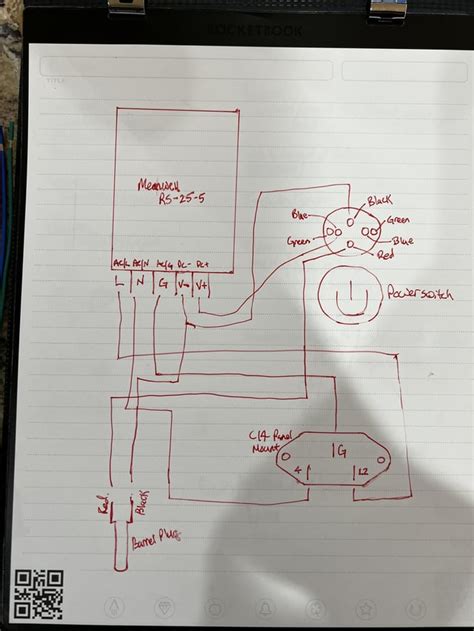 ROCKETBOOK
TITLE
Meanwell
RS-25-5
AC/L AC/N AC/G DC- DC+
L N G V- V+
Black
Blue
Green
Green
Blue
Red
Power switch
C14 Panel
Mount
G
L2
Red
Black
Barrel Plug